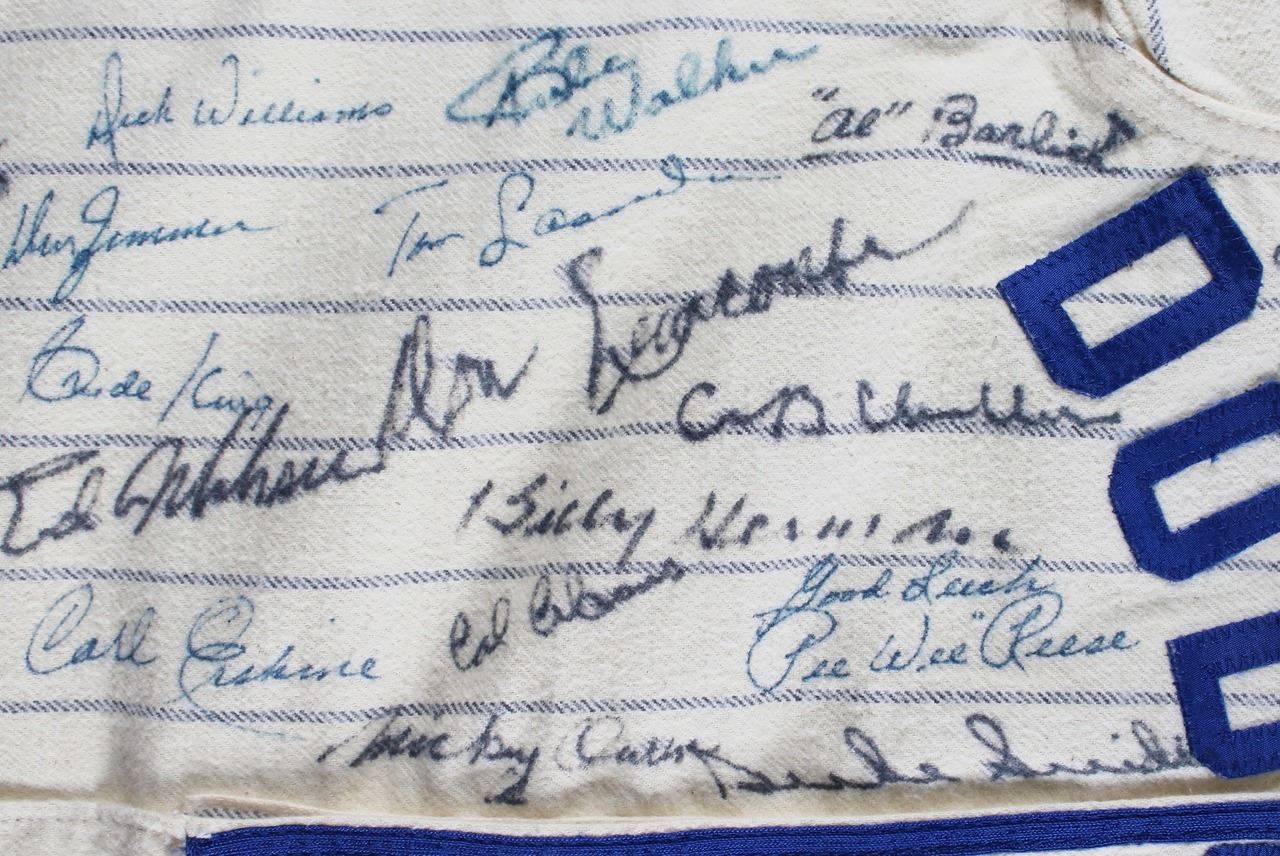 Dick Williams
Rube
Walker
"Al" Barlick
Don Zimmer
Tom Lasorda
Clyde King
Don Newcombe
Ed
Billy Herman
Carl Erskine
Cal Abrams
Good Luck
"Pee Wee" Reese
Mickey Owen
Duke Snider
DOD